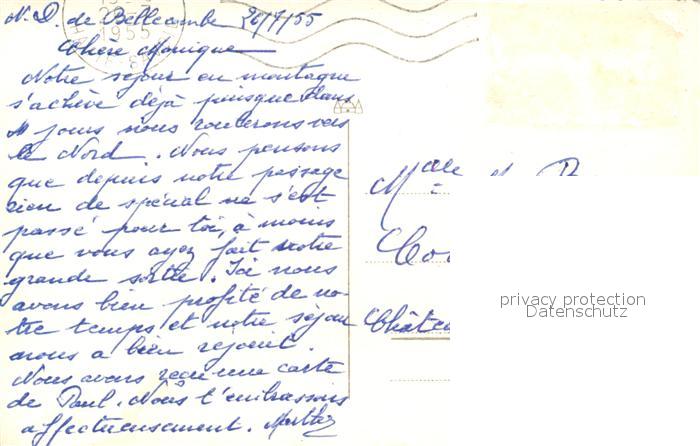 N. D. de Bellecombe 20/7/55
Chère Monique
Notre séjour en montagne
s'achève déjà puisque dans
jours nous roulerons vers
le Nord. Nous pensons
que depuis notre passage
rien de spécial ne s'est
passé pour toi, à moins
que vous ayez fait votre
grande sortie. Ici nous
avons bien profité de no-
tre temps et notre séjour
nous a bien réjoui.
Nous avons reçu une carte
de Paul. Nous t'embrassons
affectueusement. Marthe
1955
Melle
privacy protection
Datenschutz